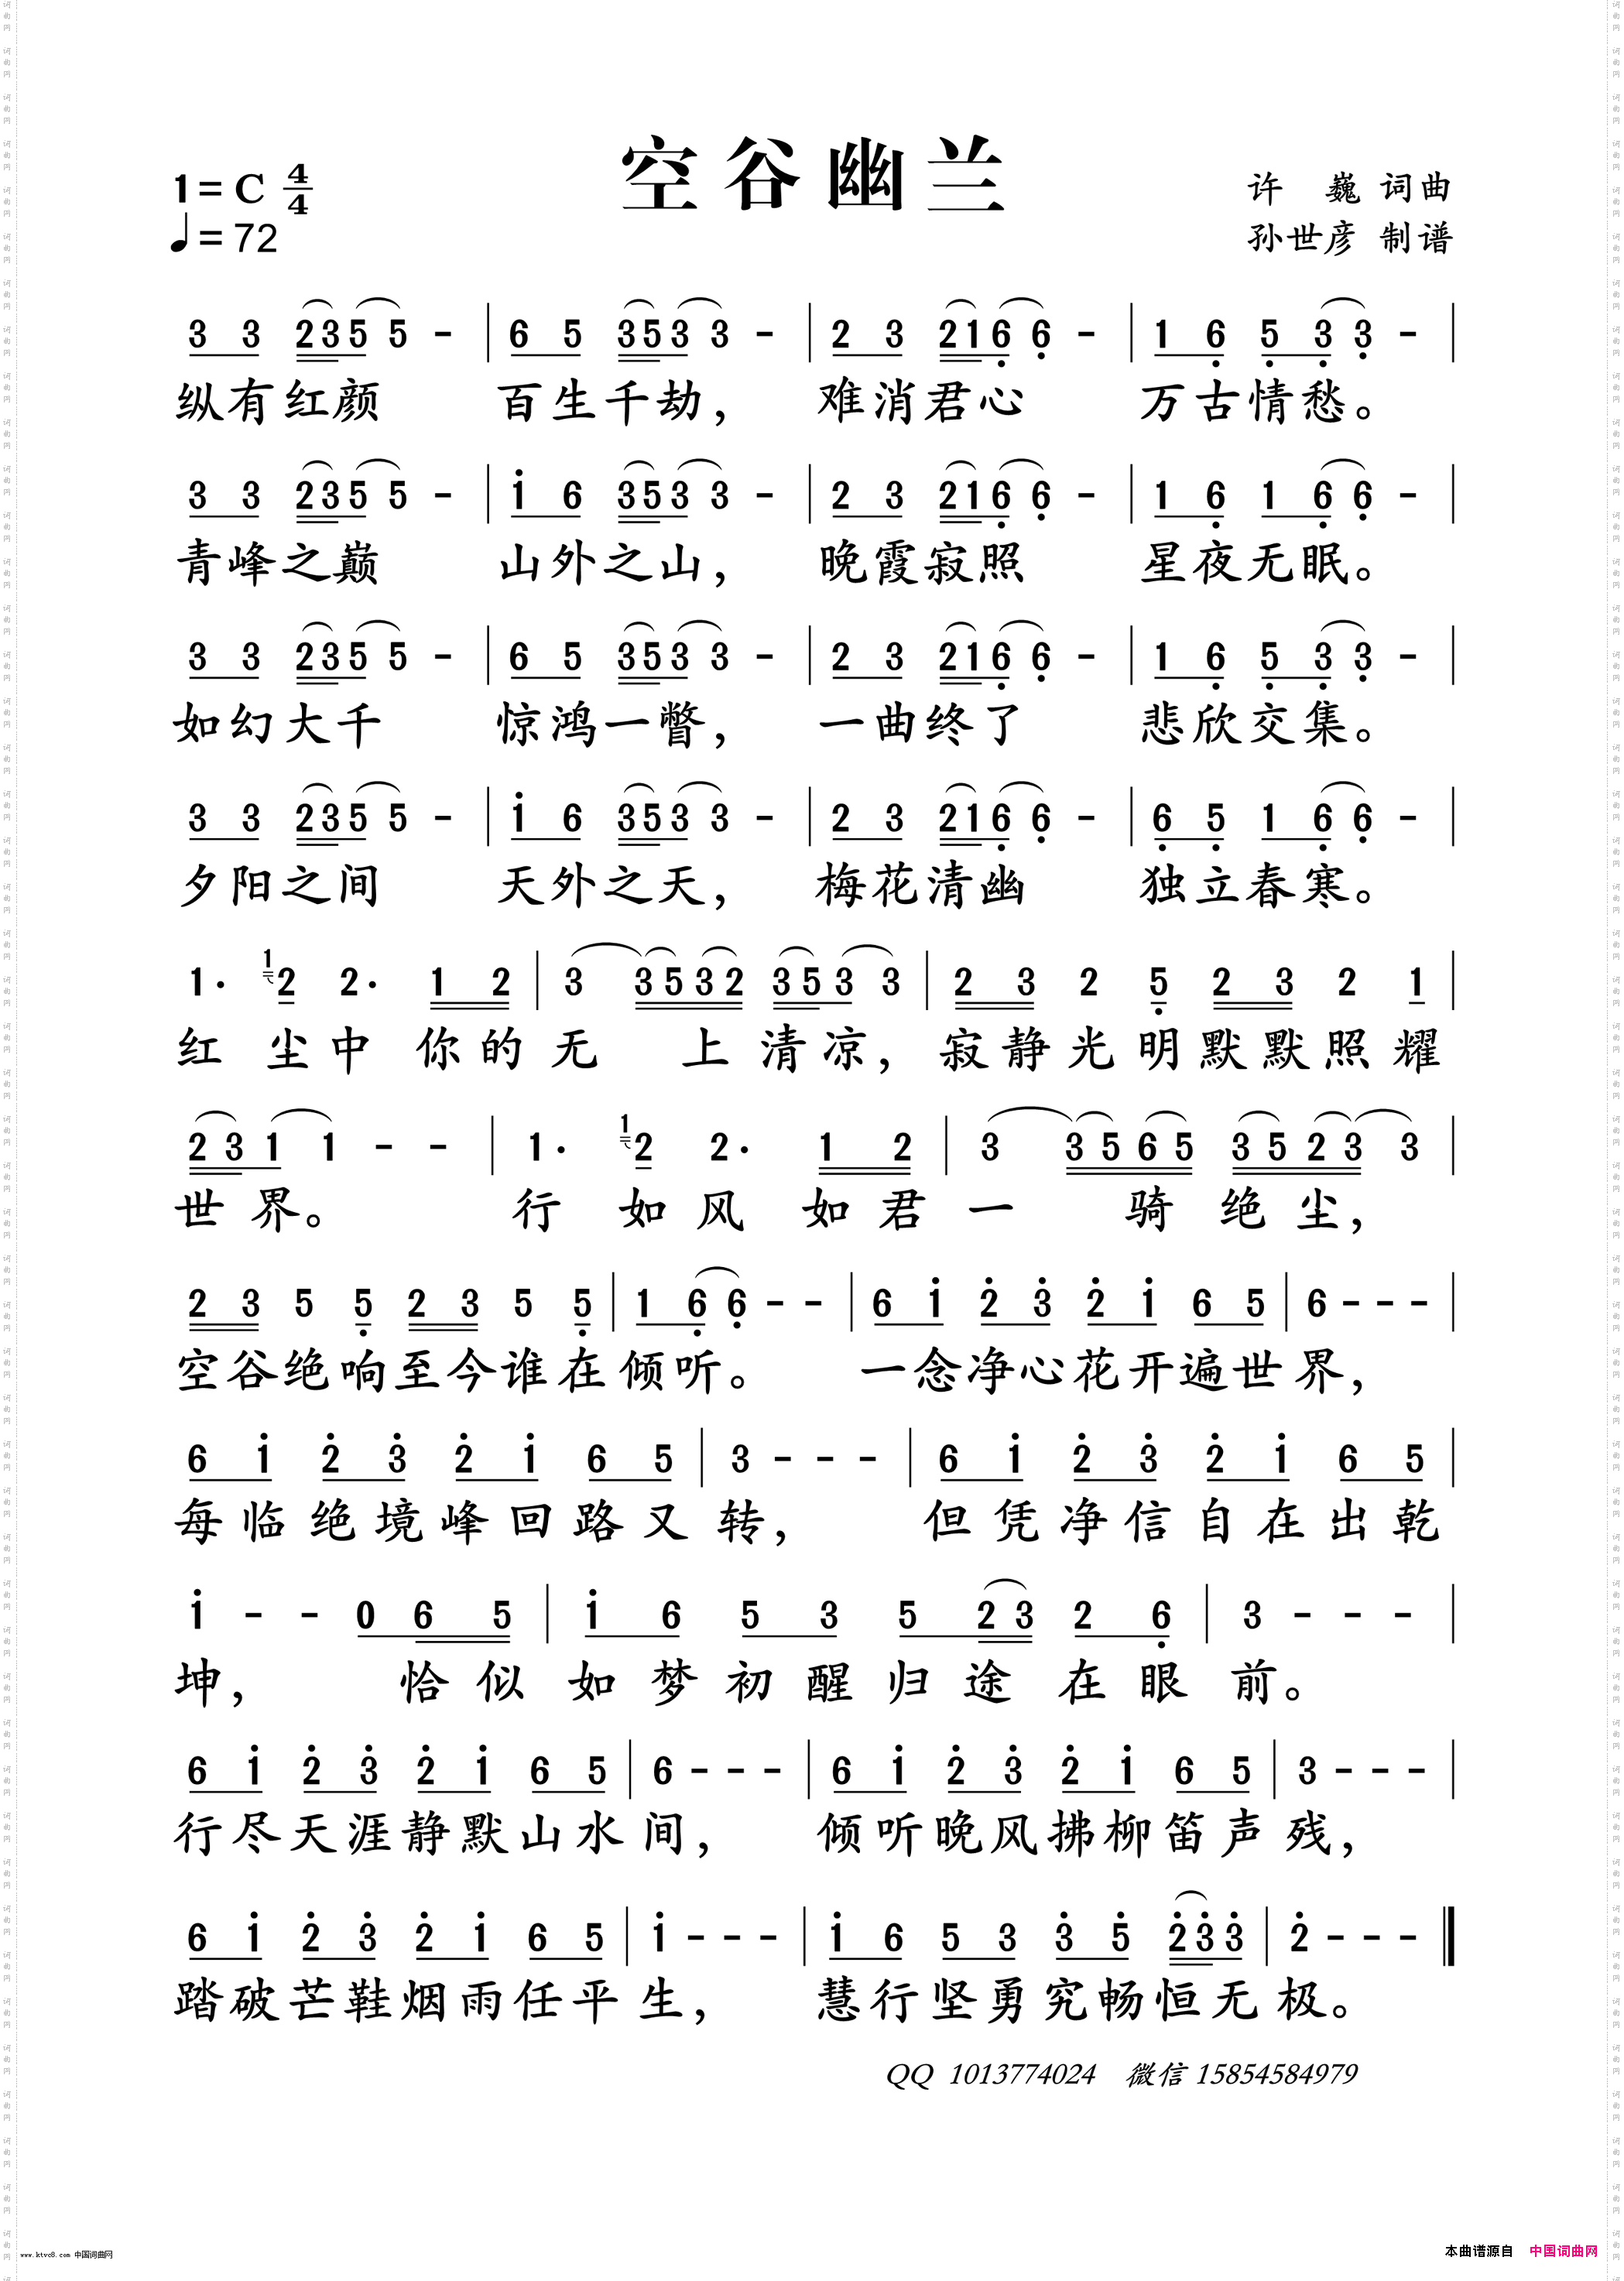 空谷幽兰
1=C 4/4
♩=72
许 巍 词曲
孙世彦 制谱
3 3 2 3 5 5 - | 6 5 3 5 3 3 - | 2 3 2 1 6̣ 6̣ - | 1 6̣ 5̣ 3̣ 3̣ - |
纵有红颜 百生千劫， 难消君心 万古情愁。
3 3 2 3 5 5 - | 1̇ 6 3 5 3 3 - | 2 3 2 1 6̣ 6̣ - | 1 6̣ 1 6̣ 6̣ - |
青峰之巅 山外之山， 晚霞寂照 星夜无眠。
3 3 2 3 5 5 - | 6 5 3 5 3 3 - | 2 3 2 1 6̣ 6̣ - | 1 6̣ 5̣ 3̣ 3̣ - |
如幻大千 惊鸿一瞥， 一曲终了 悲欣交集。
3 3 2 3 5 5 - | 1̇ 6 3 5 3 3 - | 2 3 2 1 6̣ 6̣ - | 6̣ 5̣ 1 6̣ 6̣ - |
夕阳之间 天外之天， 梅花清幽 独立春寒。
1· 1 2 2· 1 2 | 3 3 5 3 2 3 5 3 3 | 2 3 2 5̣ 2 3 2 1 |
红 尘中 你的无 上清凉， 寂静光明默默照耀
2 3 1 1 - - | 1· 1 2 2· 1 2 | 3 3 5 6 5 3 5 2 3 3 |
世界。 行 如风 如君一 骑绝尘，
2 3 5 5̣ 2 3 5 5̣ | 1 6̣ 6̣ - - | 6 1̇ 2̇ 3̇ 2̇ 1̇ 6 5 | 6 - - - |
空谷绝响至今谁在倾听。 一念净心花开遍世界，
6 1̇ 2̇ 3̇ 2̇ 1̇ 6 5 | 3 - - - | 6 1̇ 2̇ 3̇ 2̇ 1̇ 6 5 |
每临绝境峰回路又转， 但凭净信自在出乾
1̇ - - 0 6 5 | 1̇ 6 5 3 5 2 3 2 6̣ | 3 - - - |
坤， 恰似如梦初醒归途在眼前。
6 1̇ 2̇ 3̇ 2̇ 1̇ 6 5 | 6 - - - | 6 1̇ 2̇ 3̇ 2̇ 1̇ 6 5 | 3 - - - |
行尽天涯静默山水间， 倾听晚风拂柳笛声残，
6 1̇ 2̇ 3̇ 2̇ 1̇ 6 5 | 1̇ - - - | 1̇ 6 5 3 3̇ 5̇ 2̇ 3̇ 3̇ | 2̇ - - - ‖
踏破芒鞋烟雨任平生， 慧行坚勇究畅恒无极。
QQ 1013774024 微信 15854584979
www.ktvc8.com 中国词曲网
本曲谱源自 中国词曲网